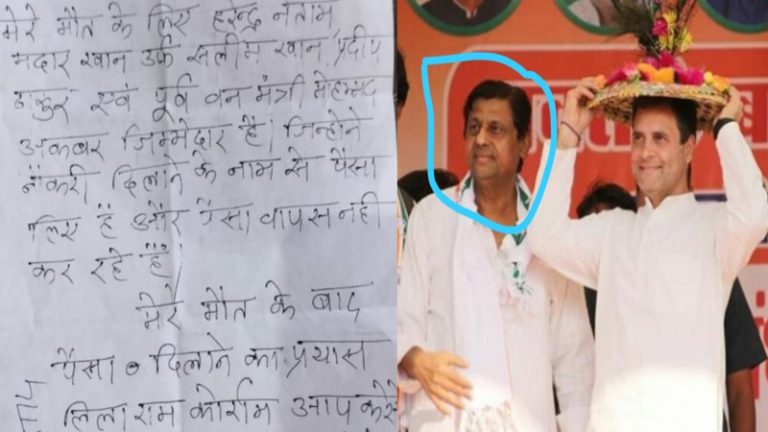 मेरे मौत के लिए हरेन्द्र नेताम,
मदार खान उर्फ सलीम खान, प्रदीप
ठाकुर एवं पूर्व वन मंत्री मोहम्मद
अकबर जिम्मेदार है। जिन्होने
नौकरी दिलाने के नाम से पैसा
लिए है और पैसा वापस नही
कर रहे है।
मेरे मौत के बाद
पैसा दिलाने का प्रयास
लिलाराम कोर्राम आप